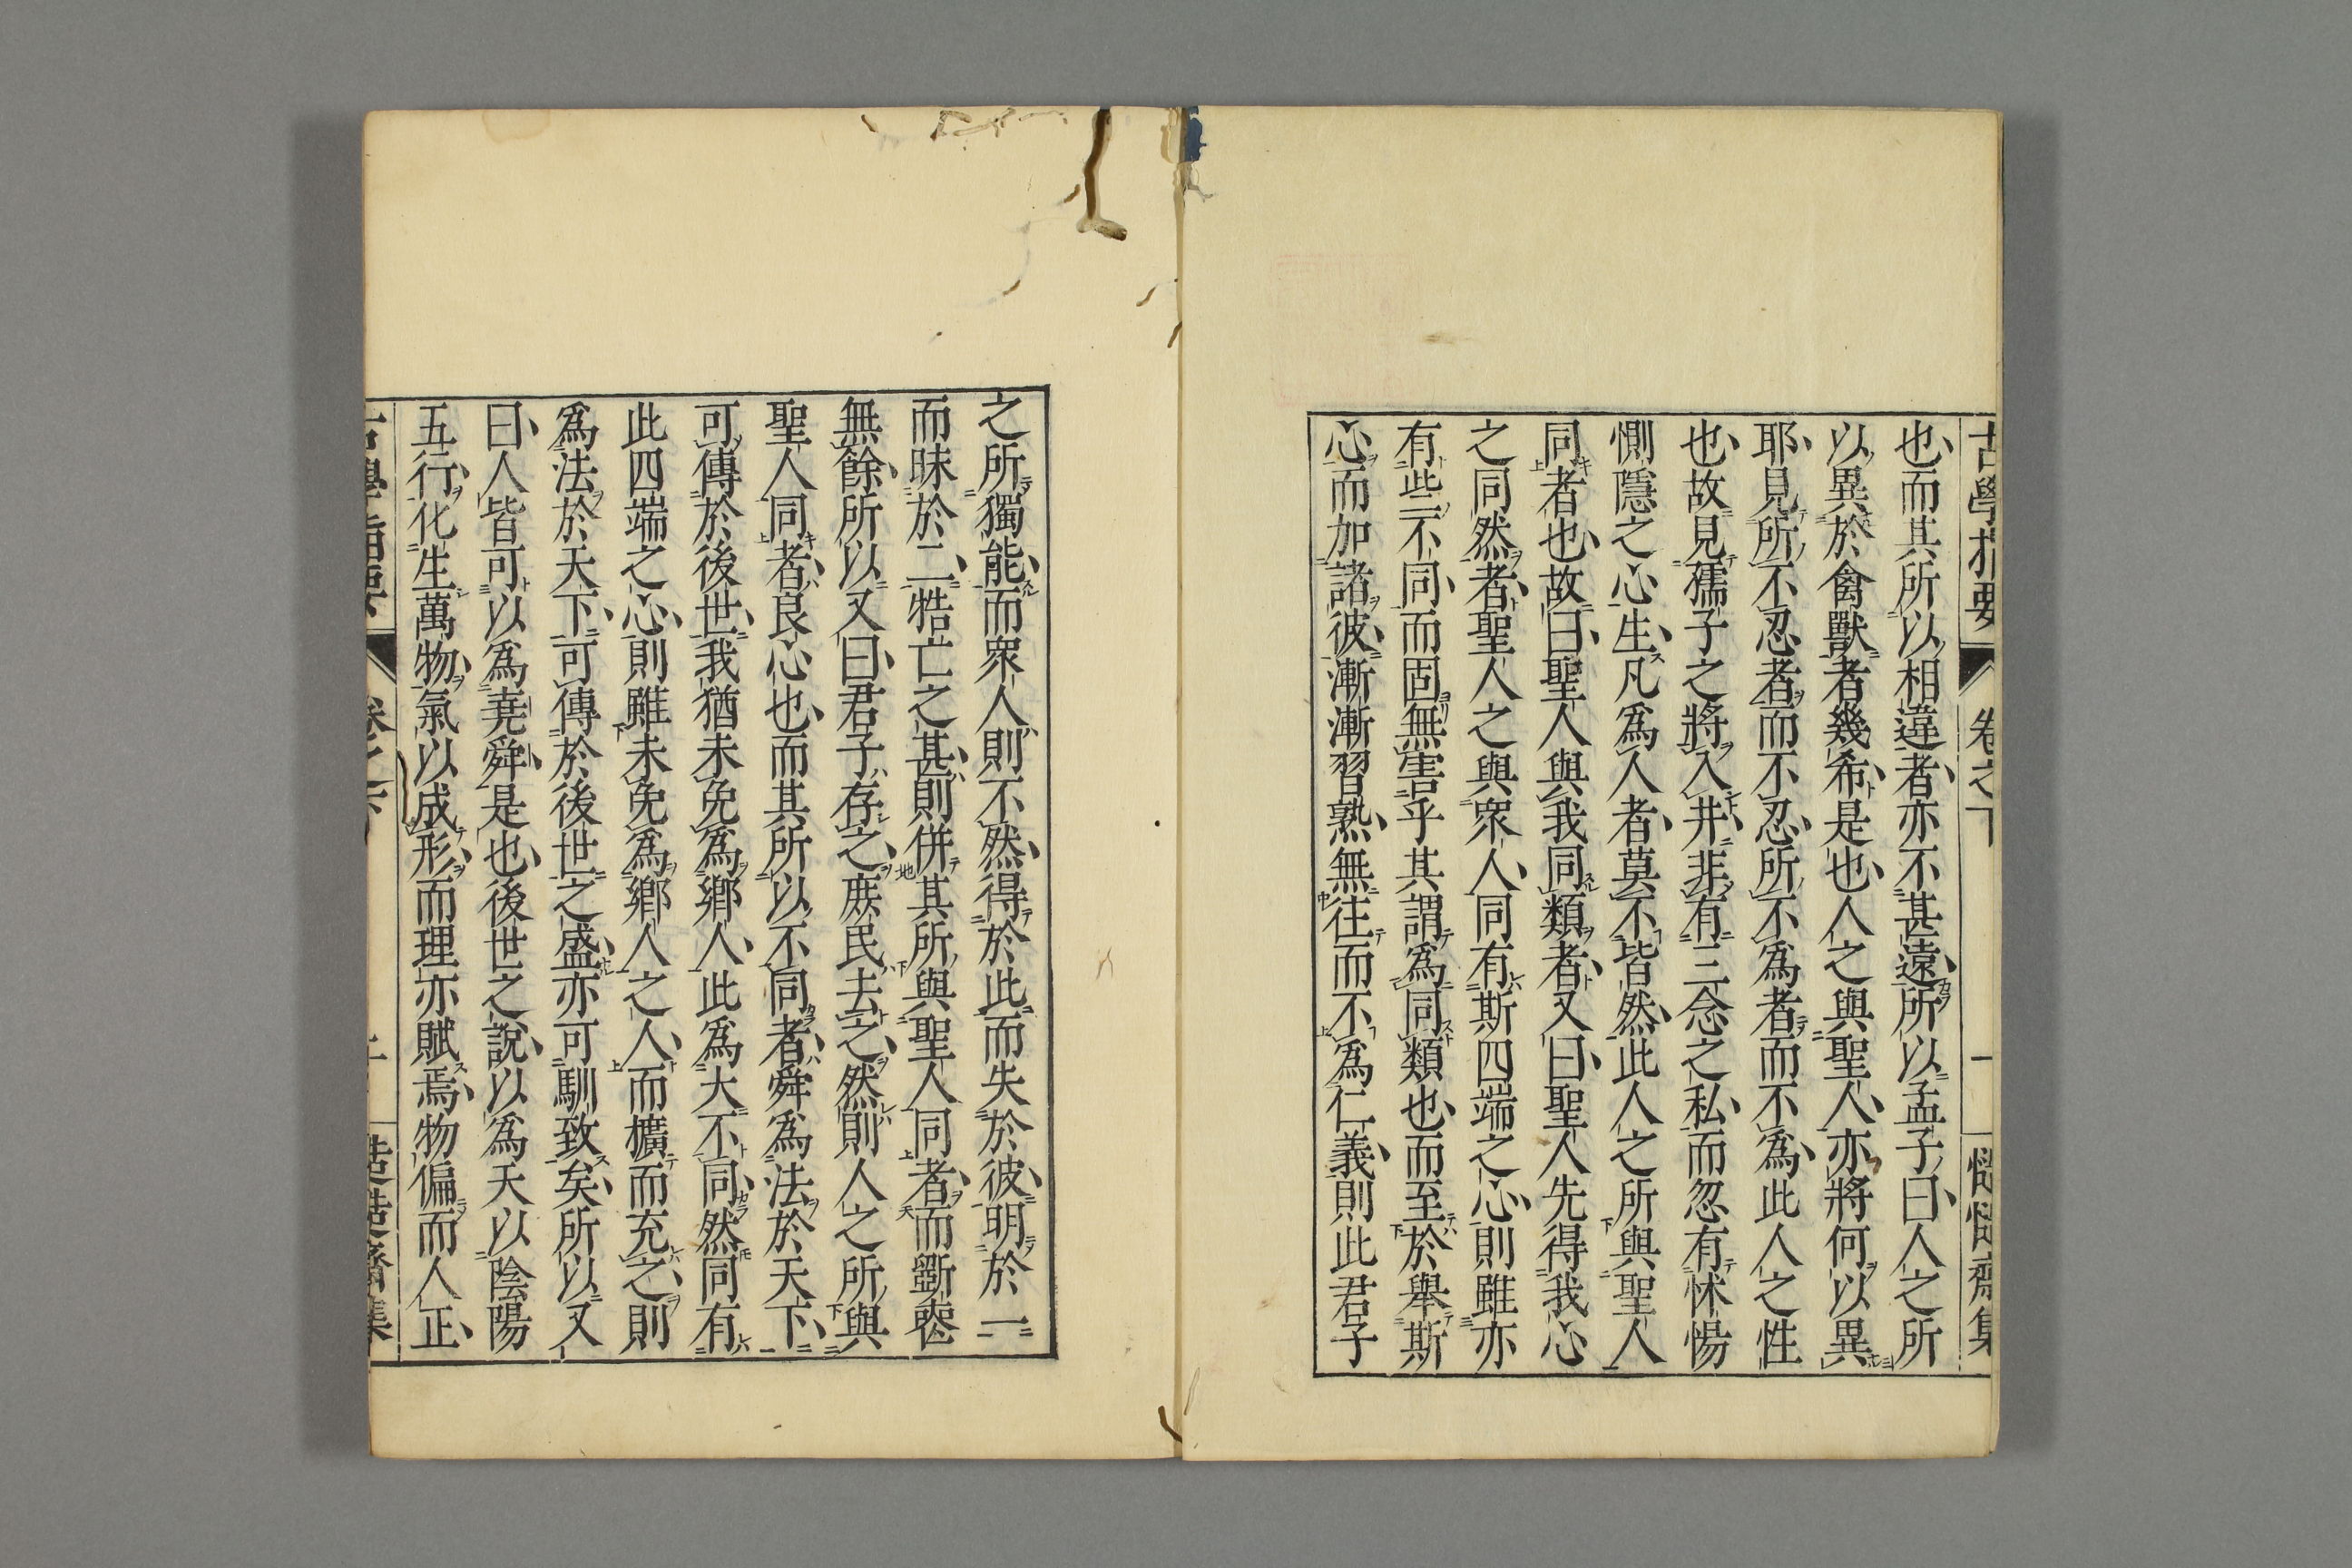 古學指要 卷之下 一 慥慥齋集
也而其所以相違者亦不甚遠所以孟子曰人之所
以異於禽獸者幾希是也人之與聖人亦將何以異
耶見所不忍者而不忍所不爲者而不爲此人之性
也故見孺子之將入井非有三念之私而忽有怵惕
惻隱之心生凡爲人者莫不皆然此人之所與聖人
同者也故曰聖人與我同類者又曰聖人先得我心
之同然者聖人之與衆人同有斯四端之心則雖亦
有些不同而固無害乎其謂爲同類也而至於舉斯
心而加諸彼漸漸習熟無往而不爲仁義則此君子
之所獨能而衆人則不然得於此而失於彼明於一
而昧於二牿亡之甚則併其所與聖人同者而斲喪
無餘所以又曰君子存之庶民去之然則人之所與
聖人同者良心也而其所以不同者舜爲法於天下
可傳於後世我猶未免爲鄉人此爲大不同然同有
此四端之心則雖未免爲鄉人之人而擴而充之則
爲法於天下可傳於後世之盛亦可馴致矣所以又
曰人皆可以爲堯舜是也後世之說以爲天以陰陽
五行化生萬物氣以成形而理亦賦焉物偏而人正
古學指要 卷之下 慥慥齋集